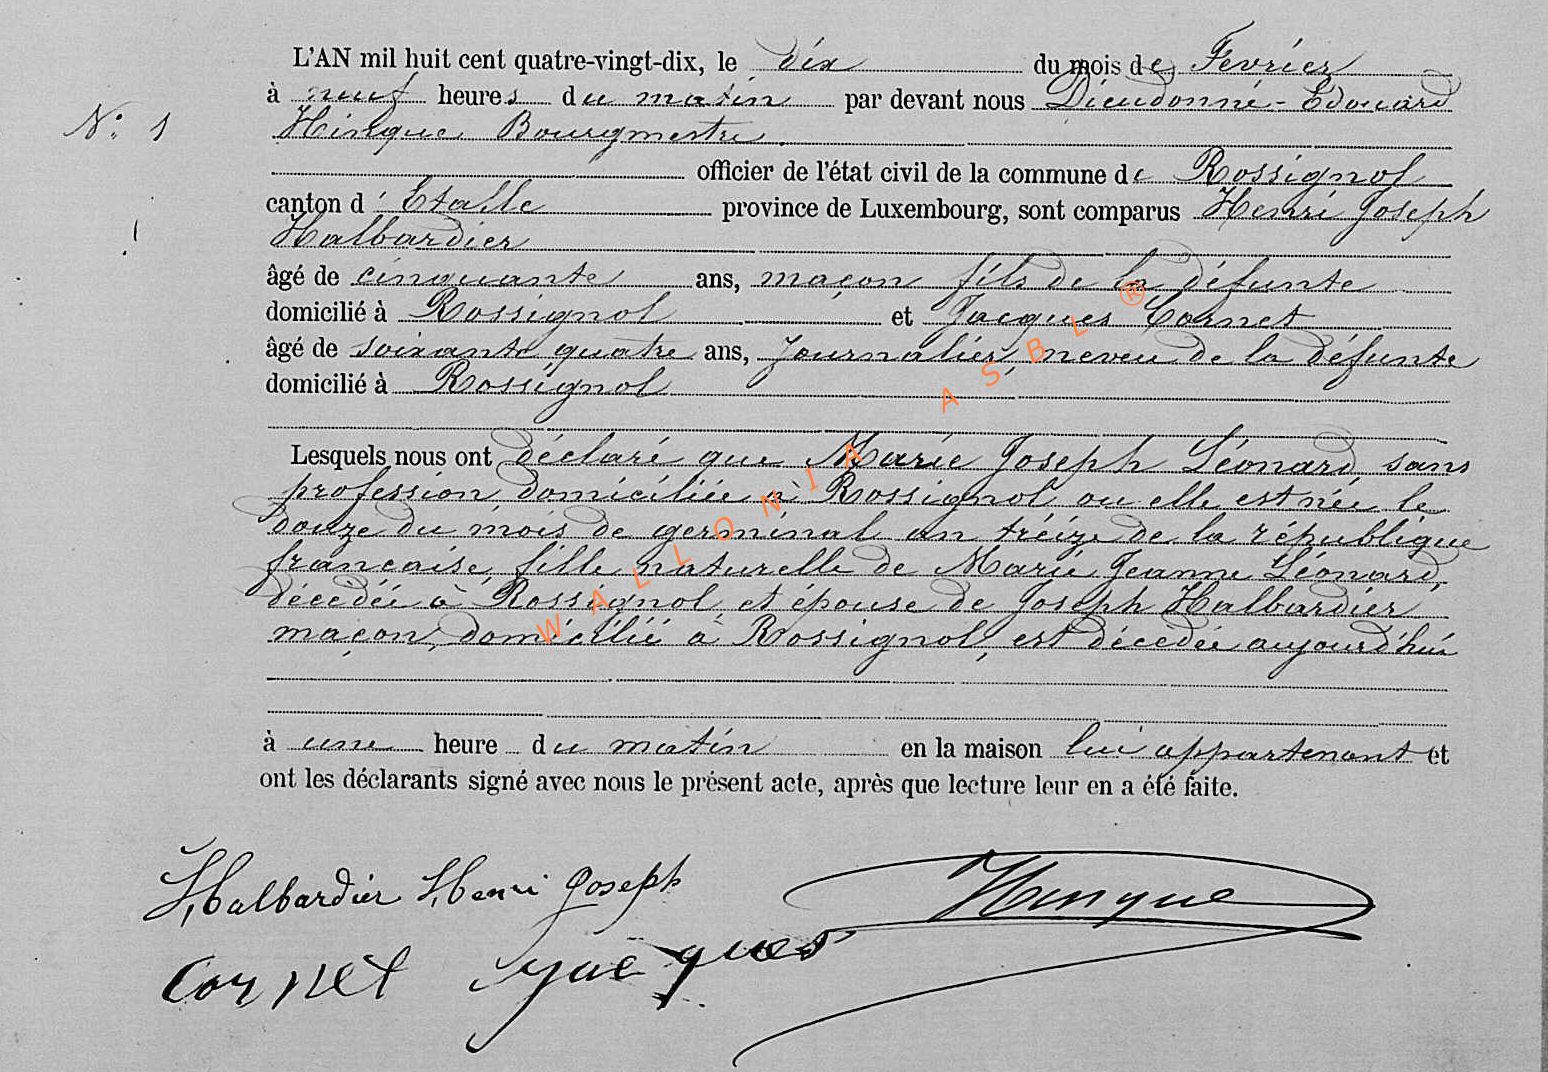 L'AN mil huit cent quatre-vingt-dix, le dix du mois de Février
à neuf heures du matin par devant nous Dieudonné-Edouard
N° 1
Hinque Bourgmestre
officier de l'état civil de la commune de Rossignol
canton d'Etalle province de Luxembourg, sont comparus Henri Joseph
Halbardier
âgé de cinquante ans, maçon fils de la défunte
domicilié à Rossignol et Jacques Cornet
âgé de soixante quatre ans, journalier, neveu de la défunte
domicilié à Rossignol
Lesquels nous ont déclaré que Marie Joseph Léonard sans
profession domiciliée à Rossignol ou elle est née le
douze du mois de germinal an treize de la république
française, fille naturelle de Marie Jeanne Léonard,
décédée à Rossignol, et épouse de Joseph Halbardier
maçon, domicilié à Rossignol, est décédée aujourd'hui
à une heure du matin en la maison lui appartenant et
ont les déclarants signé avec nous le présent acte, après que lecture leur en a été faite.
Halbardier Henri Joseph
Hinque
Cornet Jacques
WALLONIA ASBL ®